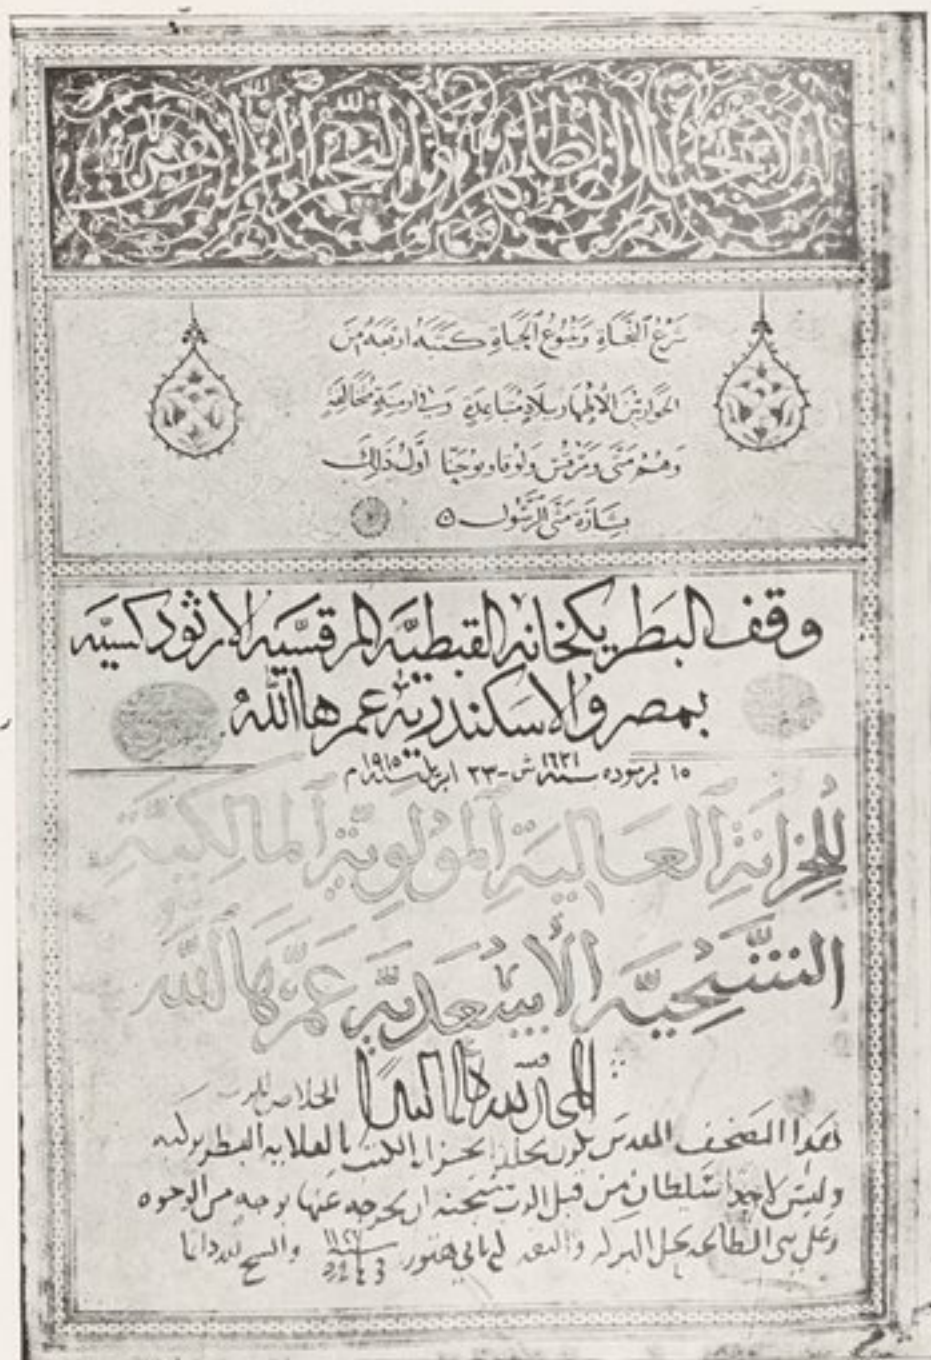 الانجيل الطاهر والفجر الزاهر
شرع النجاة وينبوع الحياة كتبه اربعة من
الحواريين الاطهار ببلاد متباعدة وسن ارمنية مخالفة
وهم متى ومرقس ولوقا ويوحنا اول ذلك
بشارة متى الرسول
وقف البطريكخانه القبطيه المرقسيه الارثوذكسيه
بمصر والاسكندريه عمرها الله
١٥ برموده سنة ١٦٣١ ش - ٢٣ ابريل سنة ١٩١٥م
للخزانة العالية المولوية المالكية
الشيخية الاسعدية عمرها الله
المجد لله دائما ابدا
هذا المصحف المقدس يكون مخلدا بخزانة الكتب بالقلاية البطريركيه
وليس لاحد سلطان من قبل الرب سبحنه ان يخرجه عنها بوجه من الوجوه
وعلى بني الطاعه تحل البركه هتور والسبح لله دايما